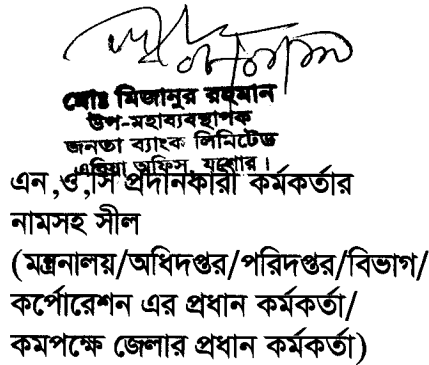 মোঃ মিজানুর রহমান
উপ-মহাব্যবস্থাপক
জনতা ব্যাংক লিমিটেড
এরিয়া অফিস, যশোর।
এন,ও,সি প্রদানকারী কর্মকর্তার
নামসহ সীল
(মন্ত্রনালয়/অধিদপ্তর/পরিদপ্তর/বিভাগ/
কর্পোরেশন এর প্রধান কর্মকর্তা/
কমপক্ষে জেলার প্রধান কর্মকর্তা)